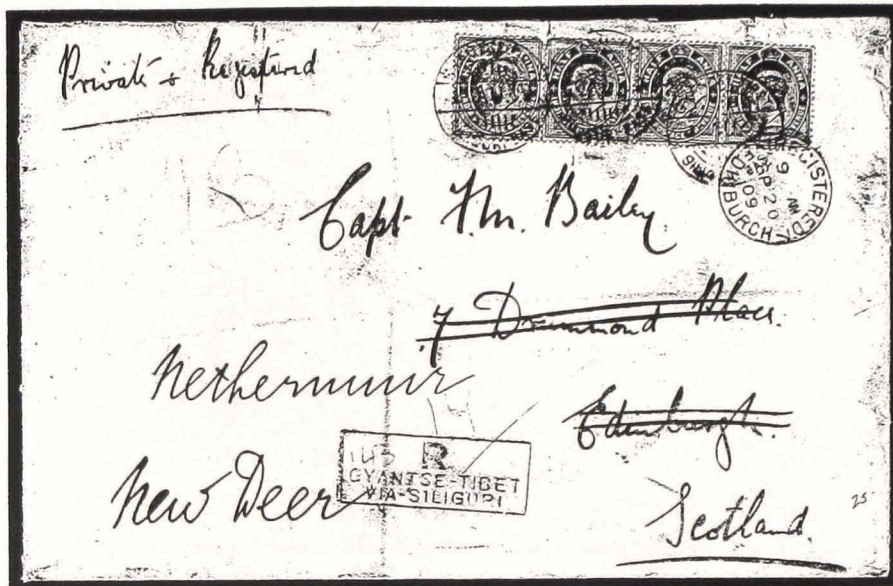 Private & Registered
REGISTERED
9 AM
SP 20
09
EDINBURGH
Capt. F.M. Bailey
7 Drummond Place.
Nethermuir
Edinburgh.
R
GYANTSE-TIBET
VIA-SILIGURI
New Deer
Scotland.
25